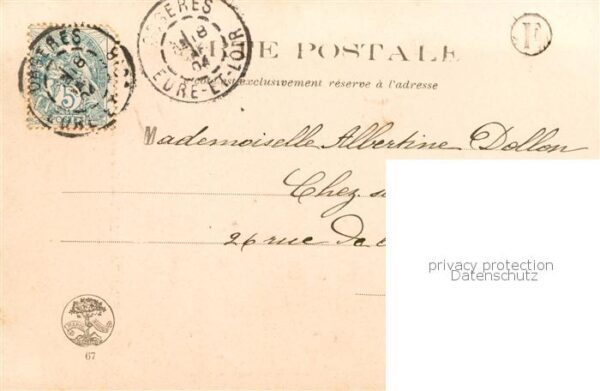 ORGERES
EURE-ET-LOIR
04
5
ORGERES
8
04
EURE-ET-LOIR
CARTE POSTALE
F
exclusivement réservé à l'adresse
Mademoiselle Albertine Dollon
Chez
26 rue de
privacy protection
Datenschutz
67